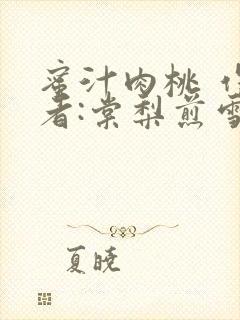 蜜汁肉桃
者:棠梨煎
夏晓